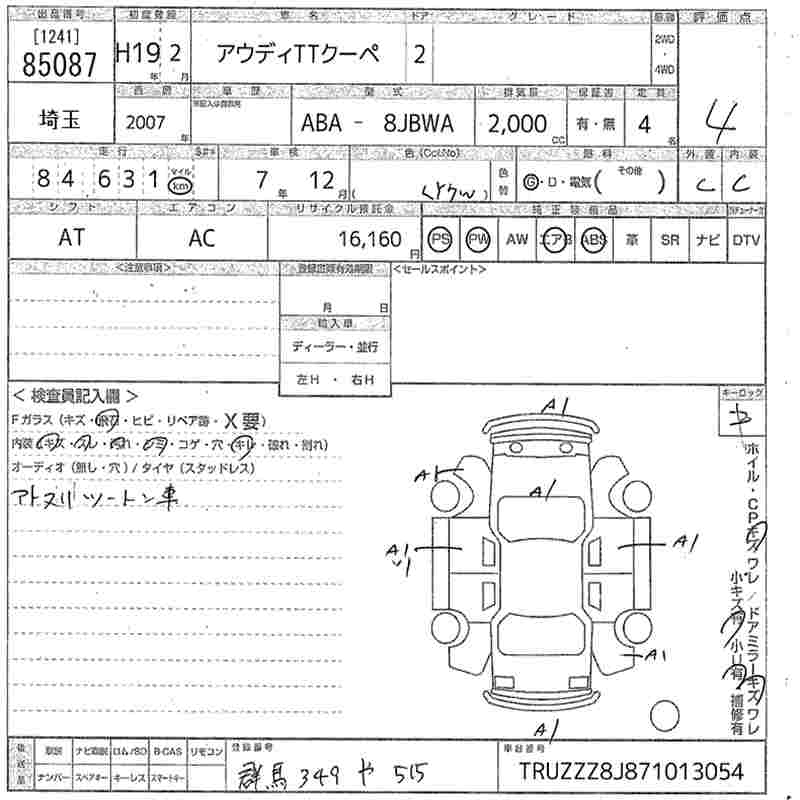 出品番号 初度登録 車名 ドア グレード 駆動 評価点
[1241] 85087 H19年 2月 アウディTTクーペ 2 2WD・4WD 4
西暦 車歴 型式 排気量 保証書 定員
埼玉 2007年 ABA - 8JBWA 2,000cc 有・無 4名
走行 車検 色(Col.No) 色替 燃料 外装 内装
84631 マイル km 7年 12月 G・D・電気( その他 ) C C
シフト エアコン リサイクル預託金 純正装備品
AT AC 16,160円 PS PW AW エアB ABS 革 SR ナビ DTV
<注意事項> 登録書類有効期限 <セールスポイント>
月 日
輸入車
ディーラー・並行
左H ・ 右H
<検査員記入欄> キーロック
Fガラス (キズ・飛石・ヒビ・リペア跡・X要)
内装 (キズ・スレ・汚れ・シミ・コゲ・穴・キレ・破れ・割れ)
オーディオ (無し・穴) / タイヤ (スタッドレス)
アトヌリツートン車
A1
A1
A1
A1
A1
A1
A1
ホイル・CPキズワレ / ドアミラーキズワレ
小キズ有 小U有 補修有
後送品 取説 ナビ取説 ロム/SD B-CAS リモコン 登録番号 車台番号
ナンバー スペアキー キーレス スマートキー 群馬 349 や 515 TRUZZZ8J871013054